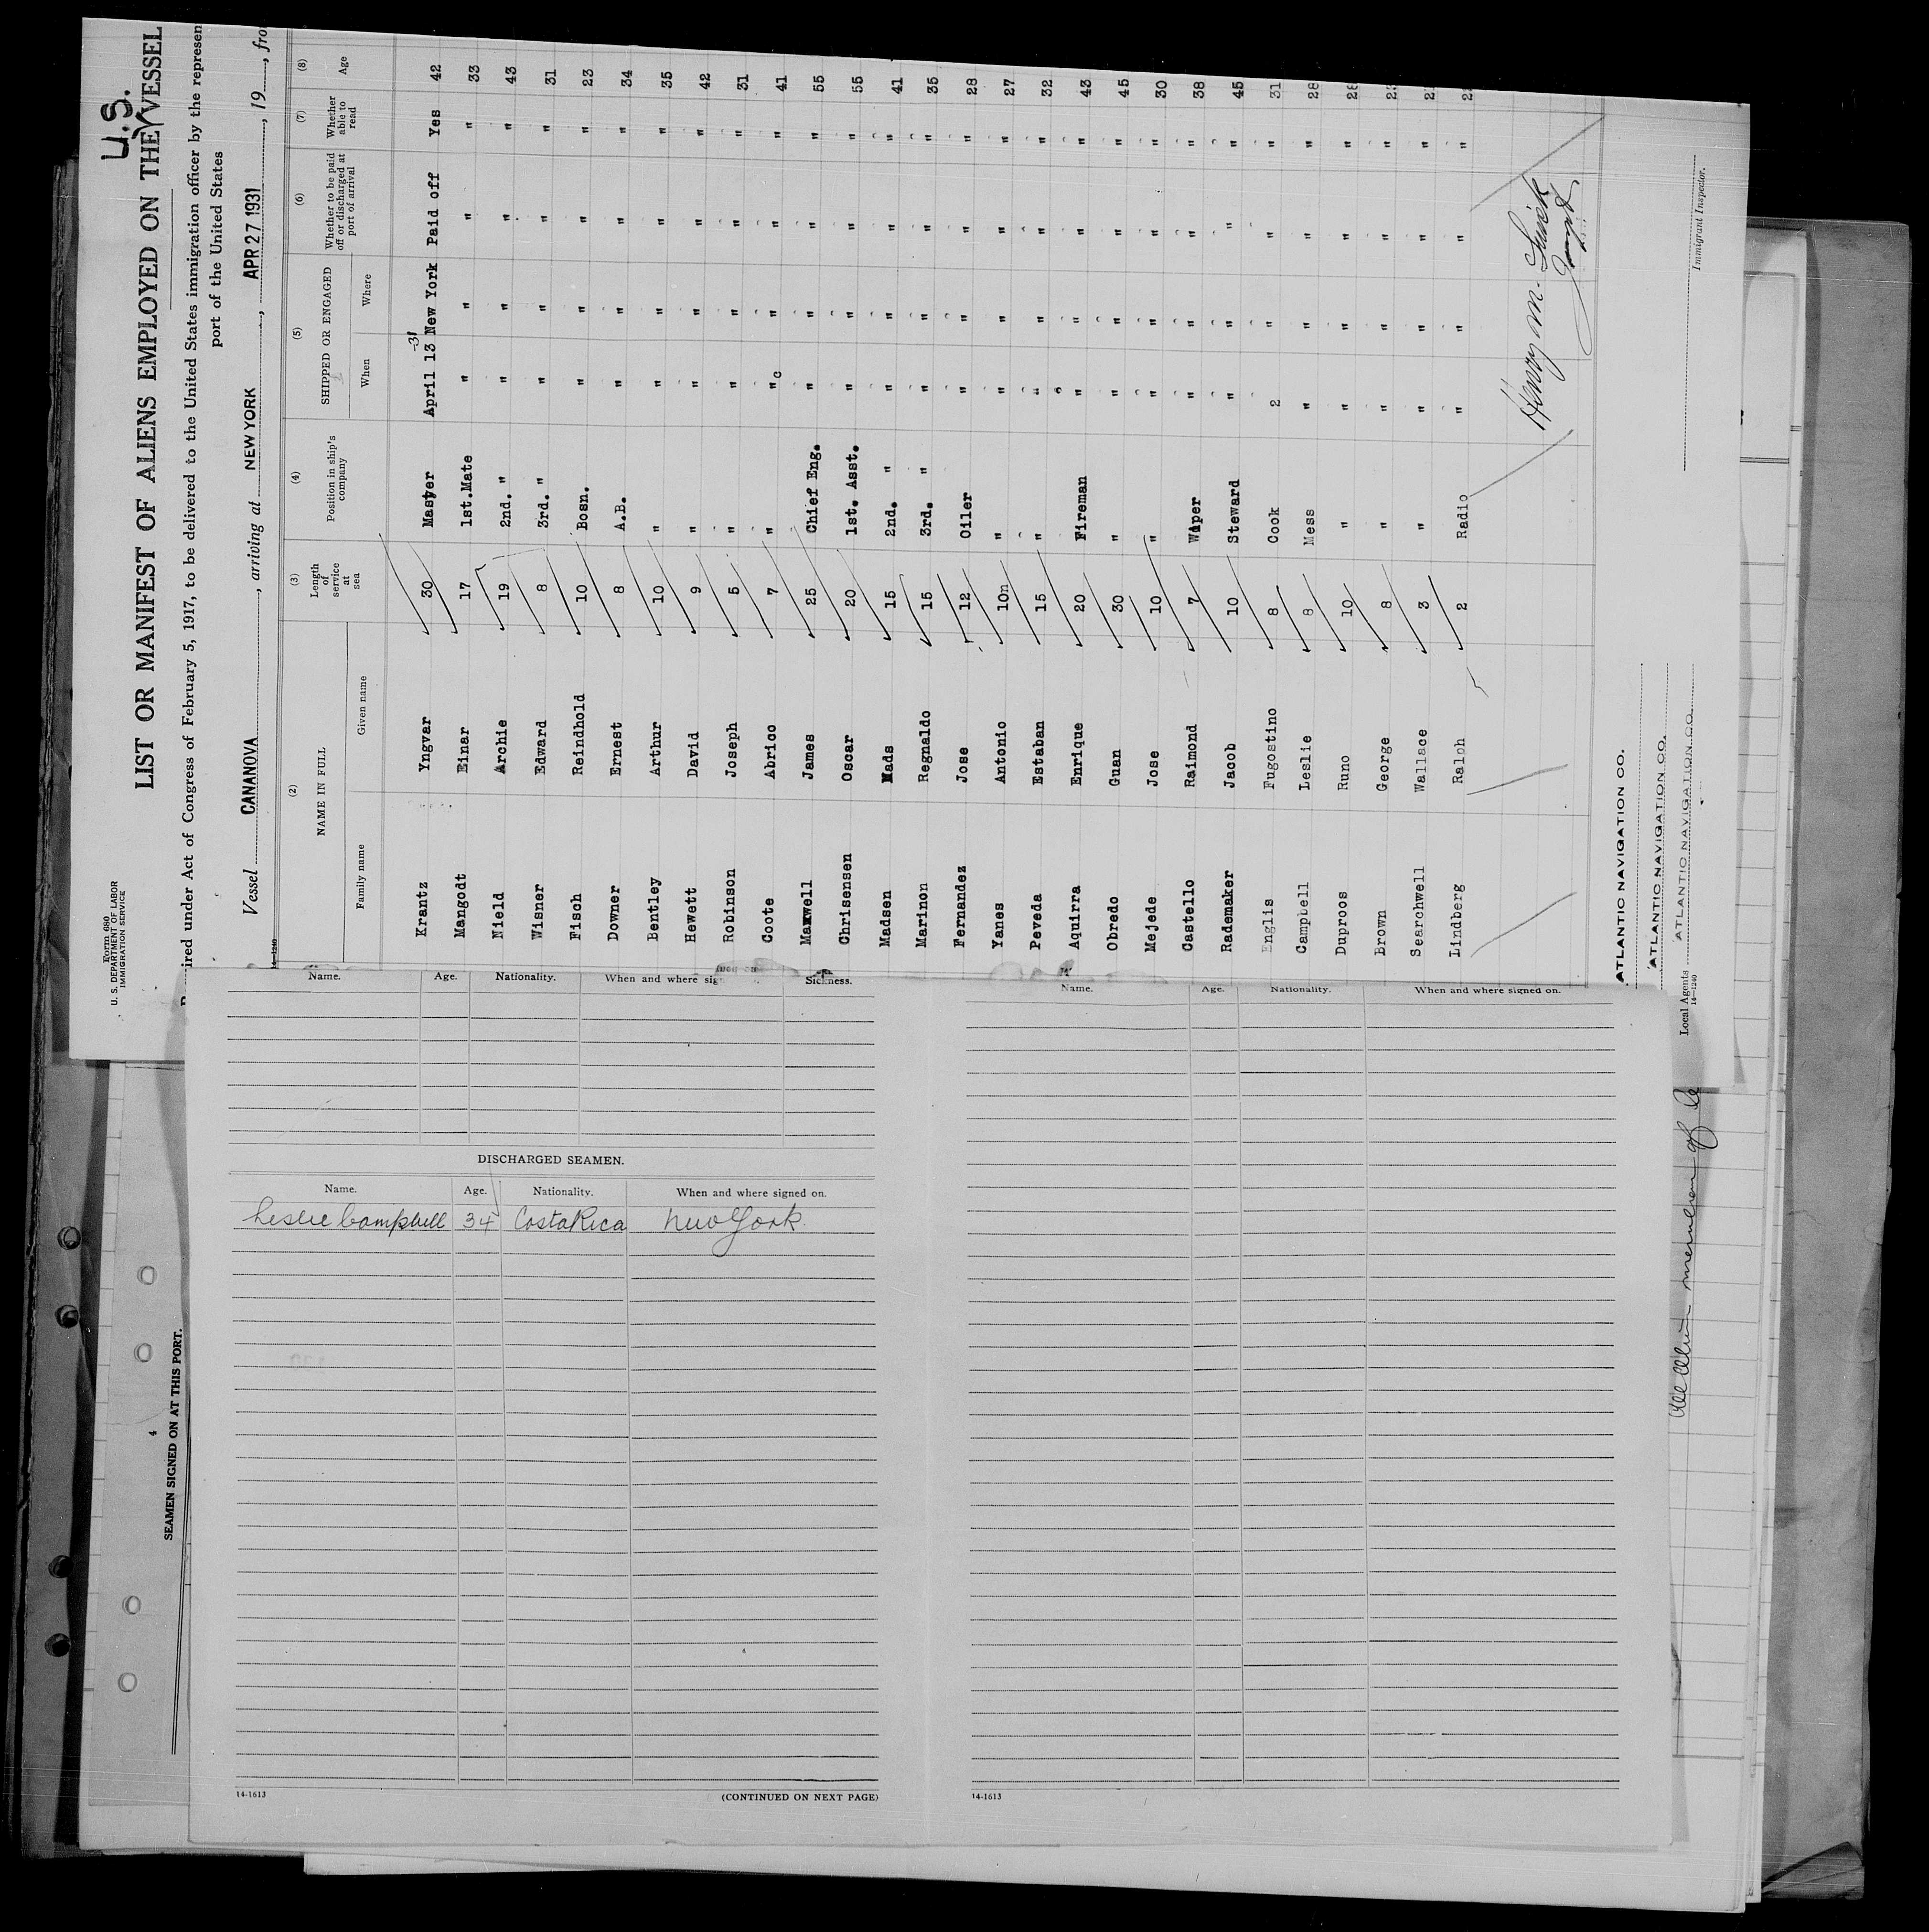 Form 680
U. S. DEPARTMENT OF LABOR
IMMIGRATION SERVICE
U.S.
LIST OR MANIFEST OF ALIENS EMPLOYED ON THE VESSEL
ired under Act of Congress of February 5, 1917, to be delivered to the United States immigration officer by the represen
port of the United States
Vessel CANANOVA, arriving at NEW YORK, APR 27 1931, 19, fro
14-1240
(2) (3) (4) (5) (6) (7) (8)
NAME IN FULL Length of service at sea Position in ship's company SHIPPED OR ENGAGED Whether to be paid off or discharged at port of arrival Whether able to read Age
Family name Given name When Where
Krantz Yngvar 30 Master April 13 -31 New York Paid off Yes 42
Mangodt Einar 17 1st.Mate " " " " 33
Nield Archie 19 2nd. " " " " " 43
Wisner Edward 8 3rd. " " " " " 31
Fisch Reindhold 10 Bosn. " " " " 23
Downer Ernest 8 A.B. " " " " 34
Bentley Arthur 10 " " " " " 35
Hewett David 9 " " " " " 42
Robinson Joseph 5 " " " " " 31
Coote Abrico 7 " " " " " 41
Maxwell James 25 Chief Eng. " " " " 55
Chrisensen Oscar 20 1st. Asst. " " " " 55
Madsen Mads 15 2nd. " " " " " 41
Marinon Regnaldo 15 3rd. " " " " " 35
Fernandez Jose 12 Oiler " " " " 28
Yanes Antonio 10n " " " " " 27
Peveda Estaban 15 " " " " " 32
Aquirra Enrique 20 Fireman " " " " 43
Obredo Guan 30 " " " " " 45
Mejede Jose 10 " " " " " 30
Castello Raimond 7 Wiper " " " " 38
Rademaker Jacob 10 Steward " " " " 45
Englis Fugostino 8 Cook 2 " " " 31
Campbell Leslie 8 Mess " " " " 28
Duproos Runo 10 " " " " "
Brown George 8 " " " " "
Searchwell Wallace 3 " " " " "
Lindberg Ralph 2 Radio " " " "
Henry M.
ATLANTIC NAVIGATION CO.
ATLANTIC NAVIGATION CO.
Local Agents ATLANTIC NAVIGATION CO.
14-1240
Immigrant Inspector.
Name. Age. Nationality. When and where sig Sickness.
DISCHARGED SEAMEN.
Name. Age. Nationality. When and where signed on.
Leslie Campbell 34 Costa Rica New York
14-1613 (CONTINUED ON NEXT PAGE)
Name. Age. Nationality. When and where signed on.
14-1613
4
SEAMEN SIGNED ON AT THIS PORT.
member of